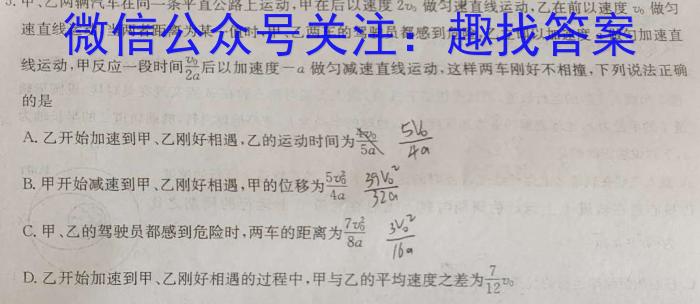 5.甲、乙两辆汽车在同一条平直公路上运动,甲在后以速度 2v₀ 做匀速直线运动,乙在前以速度 v₀ 做匀
速直线
微信公众号关注:趣找答案
线运动,甲反应一段时间v₀/2a后以加速度-a 做匀减速直线运动,这样两车刚好不相撞,下列说法正确
的是
A. 乙开始加速到甲、乙刚好相遇,乙的运动时间为 5a 5V₀/4a
B. 甲开始减速到甲、乙刚好相遇,甲的位移为5v₀²/4a 39V₀²/32a
C. 甲、乙的驾驶员都感到危险时,两车的距离为7v₀²/8a 3V₀²/16a
D. 乙开始加速到甲、乙刚好相遇的过程中,甲与乙的平均速度之差为7/12 v₀